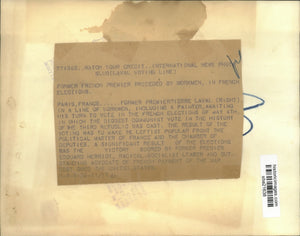 WATCH YOUR CREDIT...INTERNATIONAL NEWS PHOTO
SLUG (LAVAL VOTING LINE)
FORMER FRENCH PREMIER PRECEDED BY WORKMEN, IN FRENCH
ELECTIONS.
PARIS, FRANCE.... FORMER PREMIER PIERRE LAVAL (RIGHT)
IN A LINE OF WORKMEN, INCLUDING A PAINTER, AWAITING
HIS TURN TO VOTE IN THE FRENCH ELECTIONS OF MAY
IN WHICH THE BIGGEST COMMUNIST VOTE IN THE HISTORY
OF THE THIRD REPUBLIC WAS CAST. THE RESULT OF THE
VOTING WAS TO MAKE THE LEFTIST POPULAR FRONT THE
POLITICAL MASTER OF FRANCE AND THE CHAMBER OF
DEPUTIES. A SIGNIFICANT RESULT OF THE ELECTIONS
WAS THE VICTORY SCORED BY FORMER PREMIER
EDOUARD HERRIOT, RADICAL-SOCIALIST LEADER AND OUT-
STANDING ADVOCATE OF FRENCH PAYMENT OF THE WAR
DEBT OWED THE UNITED STATES.